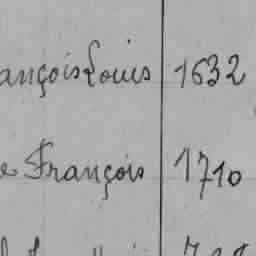 ançois Louis 1632
e François 1710